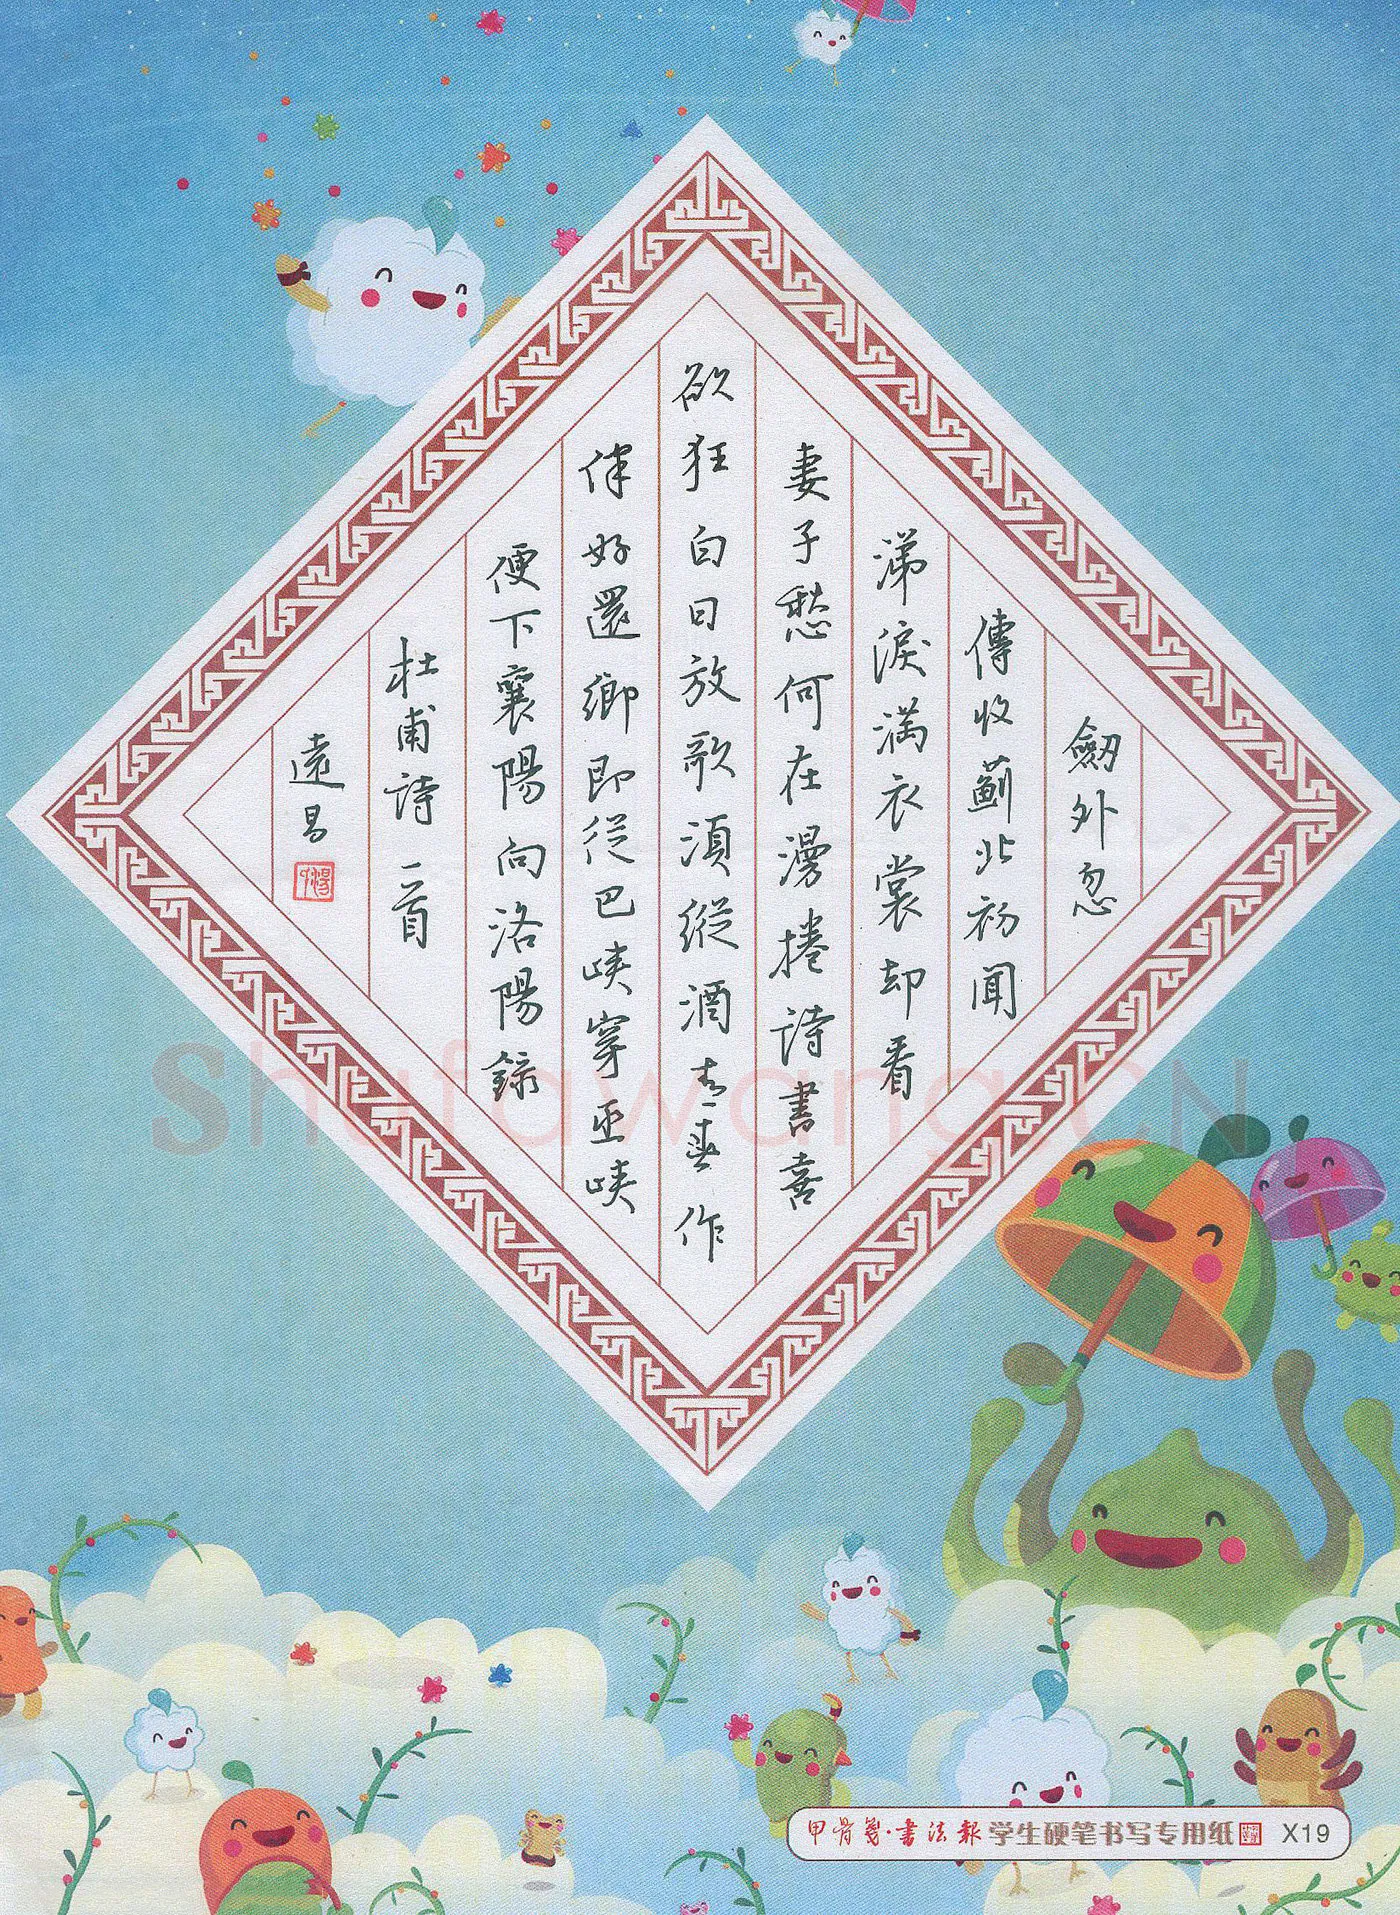 劒外忽
傳收薊北初聞
涕淚滿衣裳却看
妻子愁何在漫捲詩書喜
欲狂白日放歌須縱酒青春作
伴好還鄉即從巴峽穿巫峽
便下襄陽向洛陽錄
杜甫詩一首
遠昌
Shufawang.CN
甲骨箋·書法報 学生硬笔书写专用纸 X19